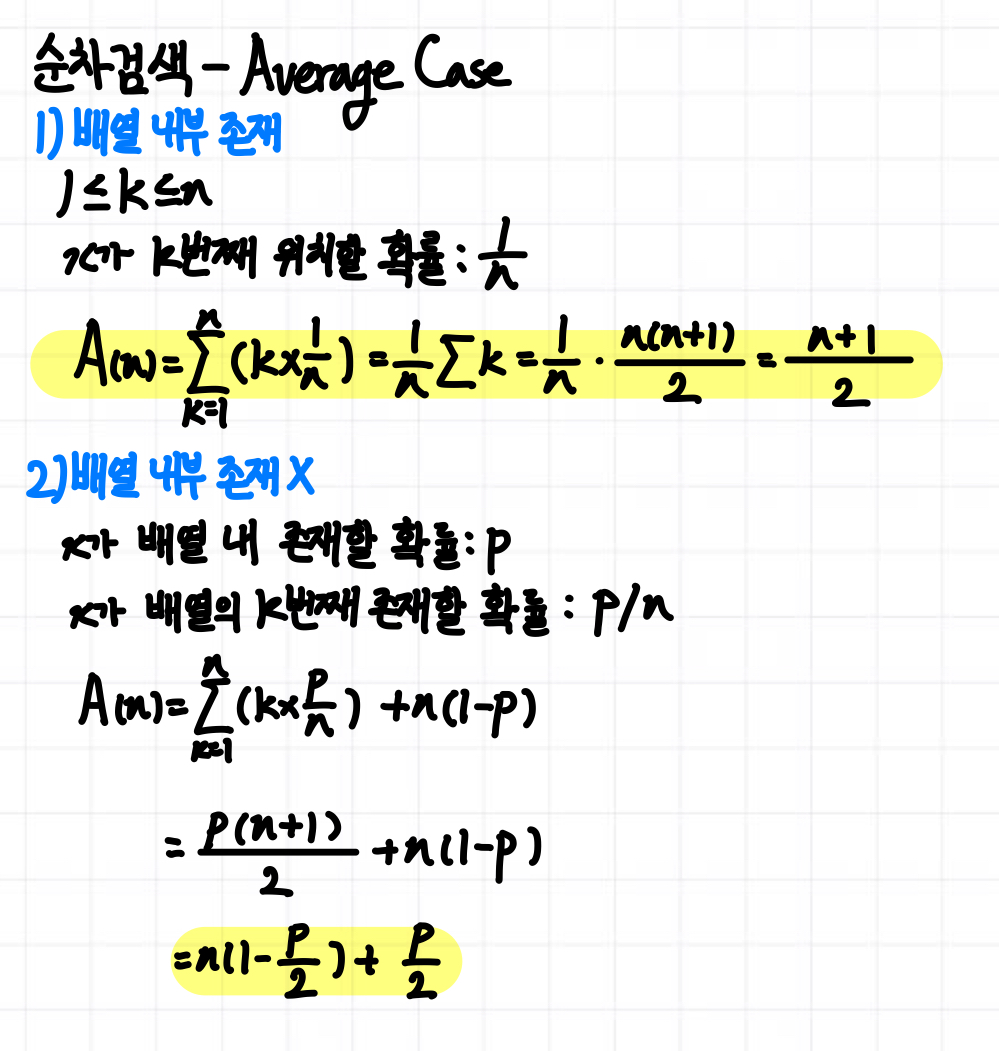 순차검색 - Average Case
1) 배열 내부 존재
1 ≤ k ≤ n
x가 k번째 위치할 확률 : 1/n
A(n) = ∑_{k=1}^{n} (k × 1/n) = 1/n ∑ k = 1/n · n(n+1)/2 = n+1/2
2) 배열 내부 존재 X
x가 배열 내 존재할 확률 : p
x가 배열의 k번째 존재할 확률 : p/n
A(n) = ∑_{k=1}^{n} (k × p/n) + n(1-p)
= p(n+1)/2 + n(1-p)
= n(1 - p/2) + p/2